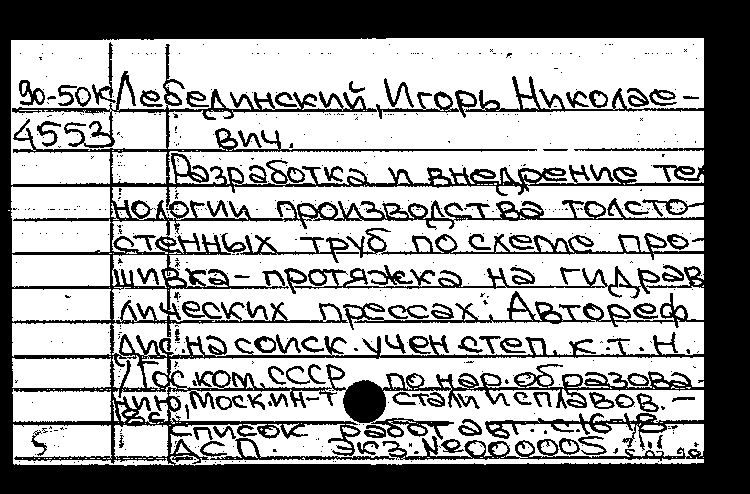 90-50к Лебединский, Игорь Николае-
4553 вич.
Разработка и внедрение тех
нологии производства толсто-
стенных труб по схеме про-
шивка-протяжка на гидрав
лических прессах: Автореф
дис. на соиск. учен. степ. к.т.н.
Гос.ком. СССР по нар. образова-
нию, Моск. ин-т стали и сплавов. -
список работ авт.: с.16-18
5 ДСП. Экз: №000005.